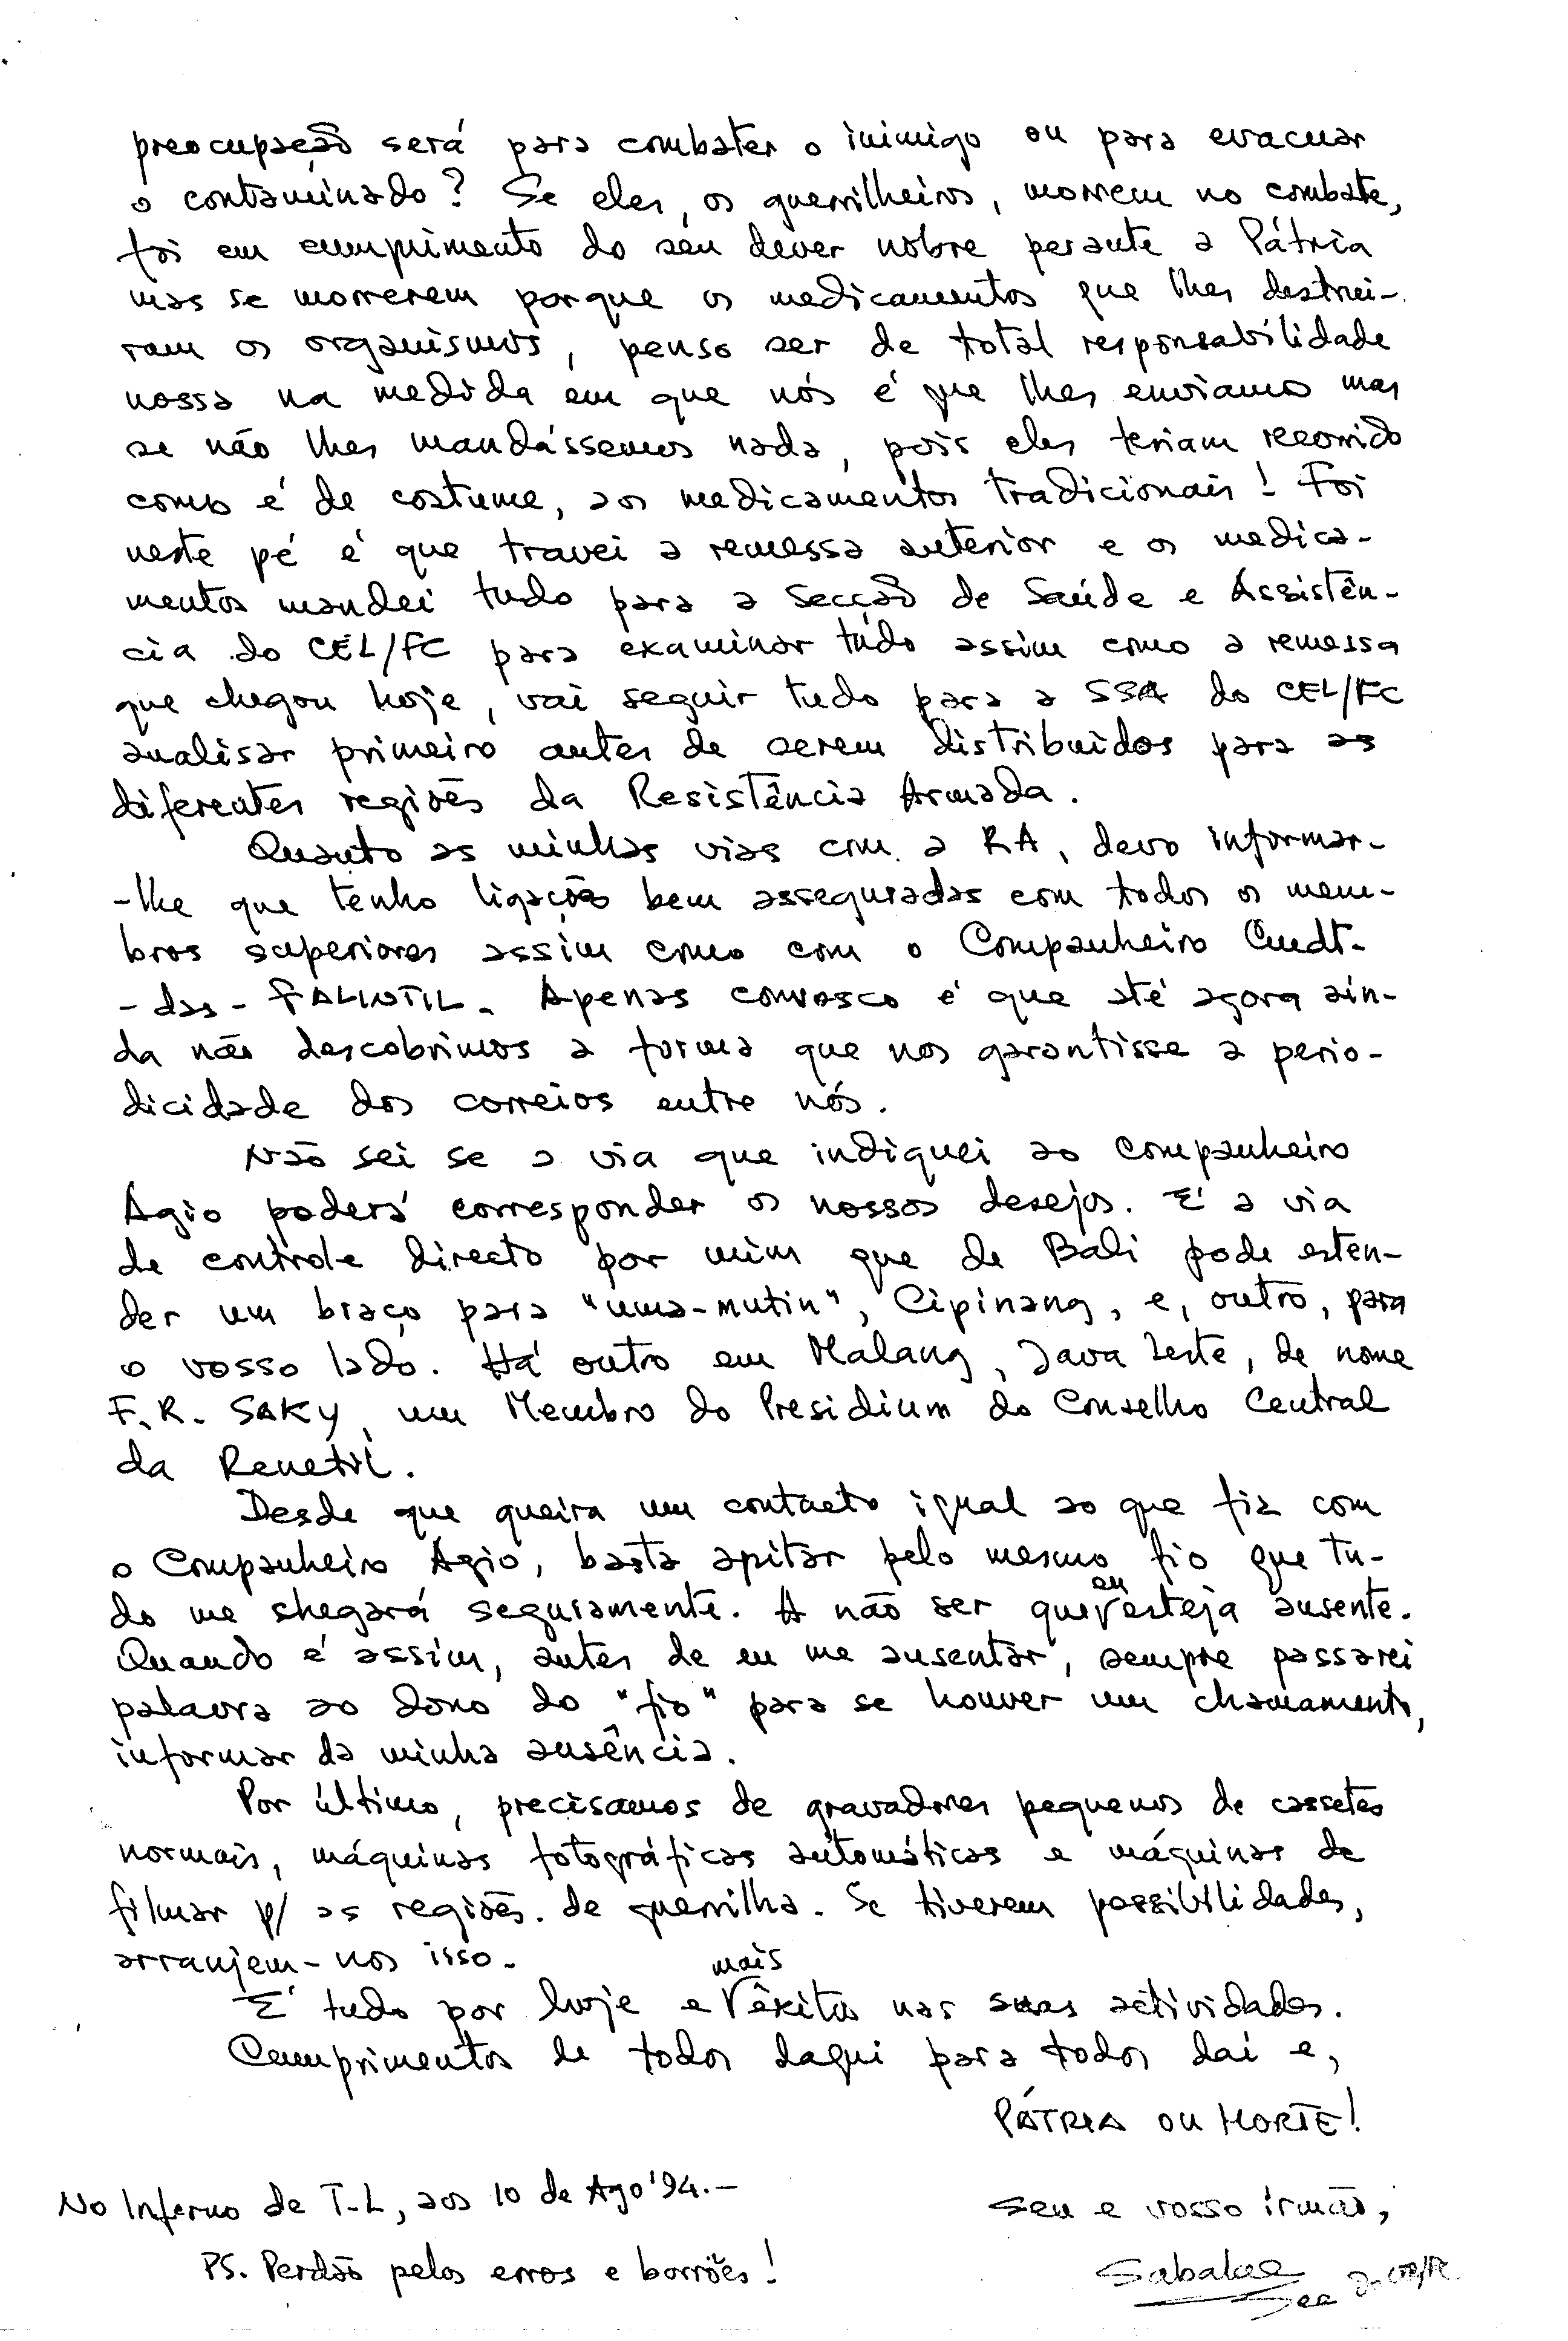 preocupação será para combater o inimigo ou para evacuar
o contaminado? Se eles, os guerrilheiros, morrem no combate,
foi em cumprimento do seu dever nobre perante a Pátria
mas se morrerem porque os medicamentos que lhes destrui-
ram os organismos, penso ser de total responsabilidade
nossa na medida em que nós é que lhes enviamos mas
se não lhes mandássemos nada, pois eles teriam recorrido
como é de costume, aos medicamentos tradicionais! Foi
neste pé é que travei a remessa anterior e os medica-
mentos mandei tudo para a Secção de Saúde e Assistên-
cia do CEL/FC para examinar tudo assim como a remessa
que chegou hoje, vai seguir tudo para a SSA do CEL/FC
analisar primeiro antes de serem distribuidos para as
diferentes regiões da Resistência Armada.
Quanto as minhas vias com a RA, devo informar-
-lhe que tenho ligações bem asseguradas com todos os mem-
bros superiores assim como com o Companheiro Cmdt-
-das-FALINTIL. Apenas convosco é que até agora ain-
da não descobrimos a forma que nos garantisse a perio-
dicidade dos correios entre nós.
Não sei se a via que indiquei ao companheiro
Ágio poderá corresponder os nossos desejos. É a via
de controle directo por mim que de Bali pode esten-
der um braço para "uma-mutin", Cipinang, e, outro, para
o vosso lado. Há outro em Malang, Java Leste, de nome
F.R. SAKY, um Membro do Presidium do Conselho Central
da Renetil.
Desde que queira um contacto igual ao que fiz com
o Companheiro Ágio, basta apitar pelo mesmo fio que tu-
do me chegará seguramente. A não ser que eu esteja ausente.
Quando é assim, antes de eu me ausentar, sempre passarei
palavra ao dono do "fio" para se houver um chamamento,
informar da minha ausência.
Por último, precisamos de gravadores pequenos de cassetes
normais, máquinas fotográficas automáticas e máquinas de
filmar p/ as regiões de guerrilha. Se tiverem possibilidades,
arranjem-nos isso.
É tudo por hoje e mais êxitos nas suas actividades.
Cumprimentos de todos daqui para todos daí e,
PÁTRIA OU MORTE!
No Inferno de T-L, aos 10 de Ago'94.-
Seu e vosso irmão,
PS. Perdão pelos erros e borrões!
Sabalae
Sec do CEL/FC